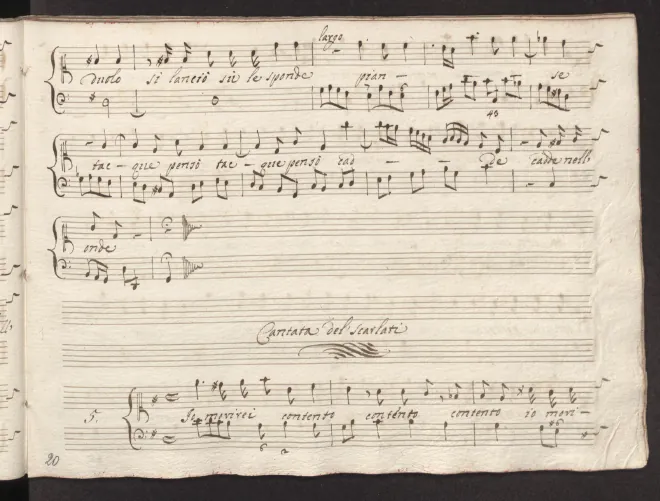 largo
duolo si lanciò sù le sponde pian - se
tac - que pensò tac - que pensò cad - - de cadde nell
onde
Cantata del Scarlati
5. Io morirei contento contento contento io mori -
20